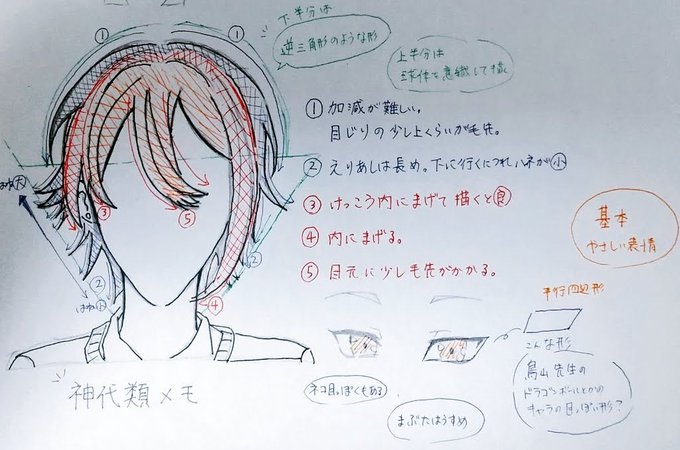 下半分は
逆三角形のような形
上半分は
球体を意識して描く
①
①
①加減が難しい。
目じりの少し上くらいが毛先。
②えりあしは長め。下に行くにつれハネが小
③けっこう内にまげて描くと良
④内にまげる。
⑤目元に少し毛先がかかる。
はね大
③
⑤
②
②
はね小
④
基本
やさしい表情
平行四辺形
こんな形
鳥山先生の
ドラゴンボールとかの
キャラの目っぽい形?
ネコ目っぽくもある
まぶたはうすめ
神代類メモ